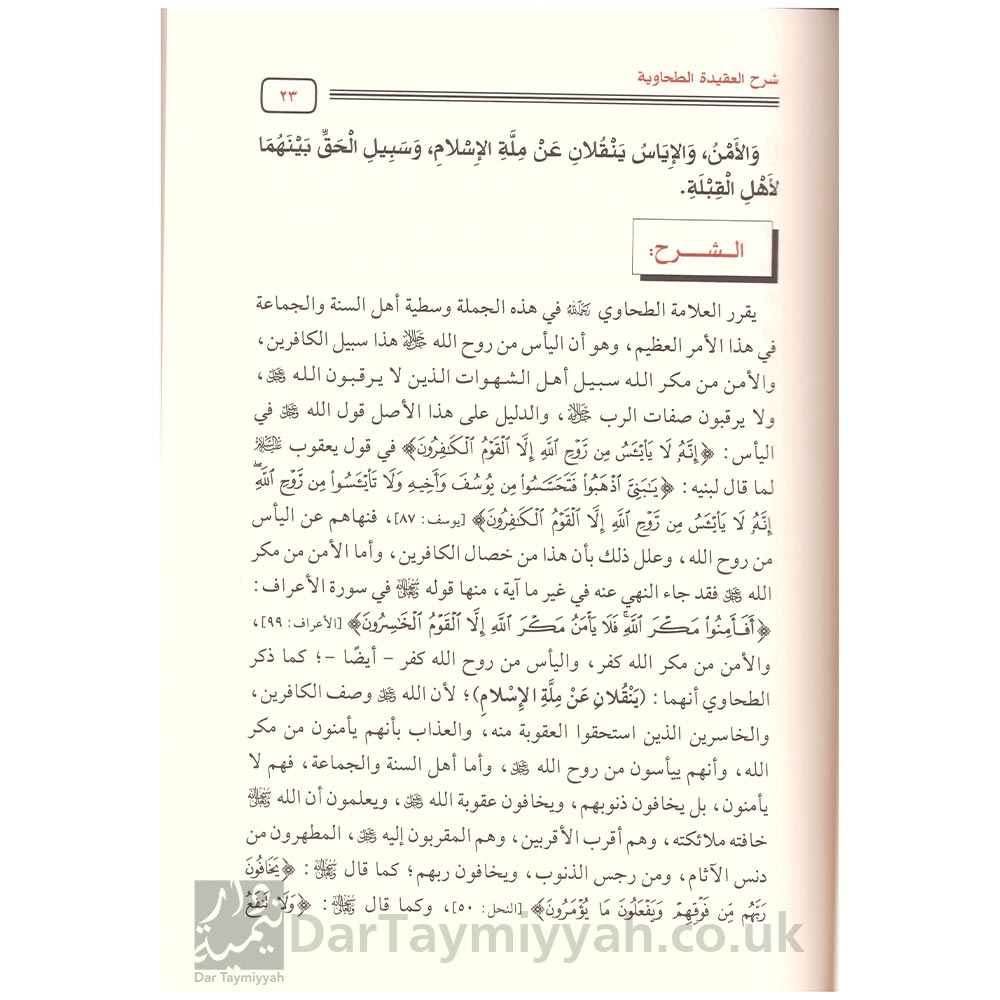 شرح العقيدة الطحاوية
٢٣
وَالأَمْنُ، وَالإِيَاسُ يَنْقُلانِ عَنْ مِلَّةِ الإِسْلامِ، وَسَبِيلِ الْحَقِّ بَيْنَهُمَا
لأَهْلِ الْقِبْلَةِ.
الشرح:
يقرر العلامة الطحاوي رحمه الله في هذه الجملة وسطية أهل السنة والجماعة
في هذا الأمر العظيم، وهو أن اليأس من روح الله جل جلاله هذا سبيل الكافرين،
والأمن من مكر الله سبيل أهل الشهوات الذين لا يرقبون الله عز وجل،
ولا يرقبون صفات الرب جل جلاله، والدليل على هذا الأصل قول الله عز وجل في
اليأس: ﴿إِنَّهُۥ لَا يَا۟يْـَٔسُ مِن رَّوْحِ ٱللَّهِ إِلَّا ٱلْقَوْمُ ٱلْكَـٰفِرُونَ﴾ في قول يعقوب عليه السلام
لما قال لبنيه: ﴿يَـٰبَنِىَّ ٱذْهَبُوا۟ فَتَحَسَّسُوا۟ مِن يُوسُفَ وَأَخِيهِ وَلَا تَا۟يْـَٔسُوا۟ مِن رَّوْحِ ٱللَّهِ ۖ
إِنَّهُۥ لَا يَا۟يْـَٔسُ مِن رَّوْحِ ٱللَّهِ إِلَّا ٱلْقَوْمُ ٱلْكَـٰفِرُونَ﴾ [يوسف: ٨٧]، فنهاهم عن اليأس
من روح الله، وعلل ذلك بأن هذا من خصال الكافرين، وأما الأمن من مكر
الله عز وجل فقد جاء النهي عنه في غير ما آية، منها قوله سبحانه وتعالى في سورة الأعراف:
﴿أَفَأَمِنُوا۟ مَكْرَ ٱللَّهِ ۚ فَلَا يَأْمَنُ مَكْرَ ٱللَّهِ إِلَّا ٱلْقَوْمُ ٱلْخَـٰسِرُونَ﴾ [الأعراف: ٩٩]،
والأمن من مكر الله كفر، واليأس من روح الله كفر - أيضًا -؛ كما ذكر
الطحاوي أنهما: (يَنْقُلانِ عَنْ مِلَّةِ الإِسْلامِ)؛ لأن الله عز وجل وصف الكافرين،
والخاسرين الذين استحقوا العقوبة منه، والعذاب بأنهم يأمنون من مكر
الله، وأنهم ييأسون من روح الله عز وجل، وأما أهل السنة والجماعة، فهم لا
يأمنون، بل يخافون ذنوبهم، ويخافون عقوبة الله عز وجل، ويعلمون أن الله سبحانه وتعالى
خافته ملائكته، وهم أقرب الأقربين، وهم المقربون إليه عز وجل، المطهرون من
دنس الآثام، ومن رجس الذنوب، ويخافون ربهم؛ كما قال سبحانه وتعالى: ﴿يَخَافُونَ
رَبَّهُم مِّن فَوْقِهِمْ وَيَفْعَلُونَ مَا يُؤْمَرُونَ﴾ [النحل: ٥٠]، وكما قال سبحانه وتعالى: ﴿وَلَا تَنفَعُ
دار تيمية
Dar Taymiyyah
DarTaymiyyah.co.uk